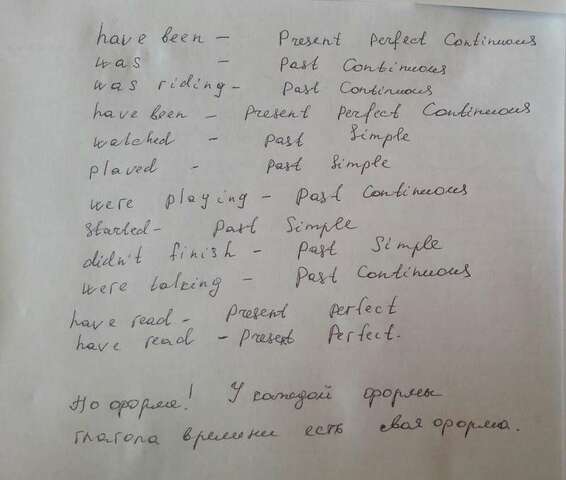 have been - Present Perfect Continuous
was - Past Continuous
was riding - Past Continuous
have been - Present Perfect Continuous
watched - Past Simple
plaved - Past Simple
were playing - Past Continuous
started - Past Simple
didn't finish - Past Simple
were talking - Past Continuous
have read - Present Perfect
have read - Present Perfect.
Но форма! У каждой формы
глагола времени есть своя форма.